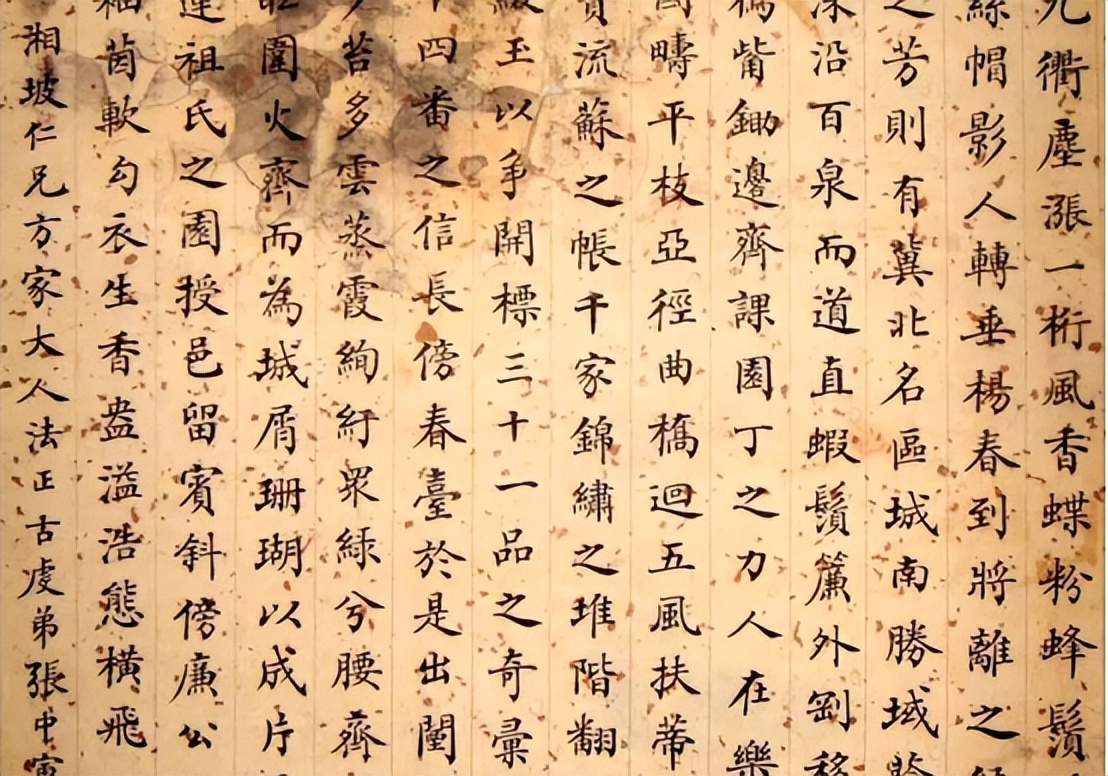 九衢塵漲一桁風香蝶粉蜂鬚
絲帽影人轉垂楊春到將離之
之芳則有冀北名區城南勝域
深沿百泉而道直蝦鬚簾外劚移
觜鋤邊齊課園丁之力人在樂
疇平枝亞徑曲橋迴五風扶蒂
流蘇之帳千家錦繡之堆階翻
綴玉以爭開標三十一品之奇彙
十四番之信長傍春臺於是出闉
苔多雲蒸霞絢紆眾綠兮腰齊
圍火齊而為城屑珊瑚以成片
連祖氏之園授邑留賓斜傍廉公
茵軟勾衣生香盎溢浩態橫飛
湘坡仁兄方家大人法正古虞弟張中寅